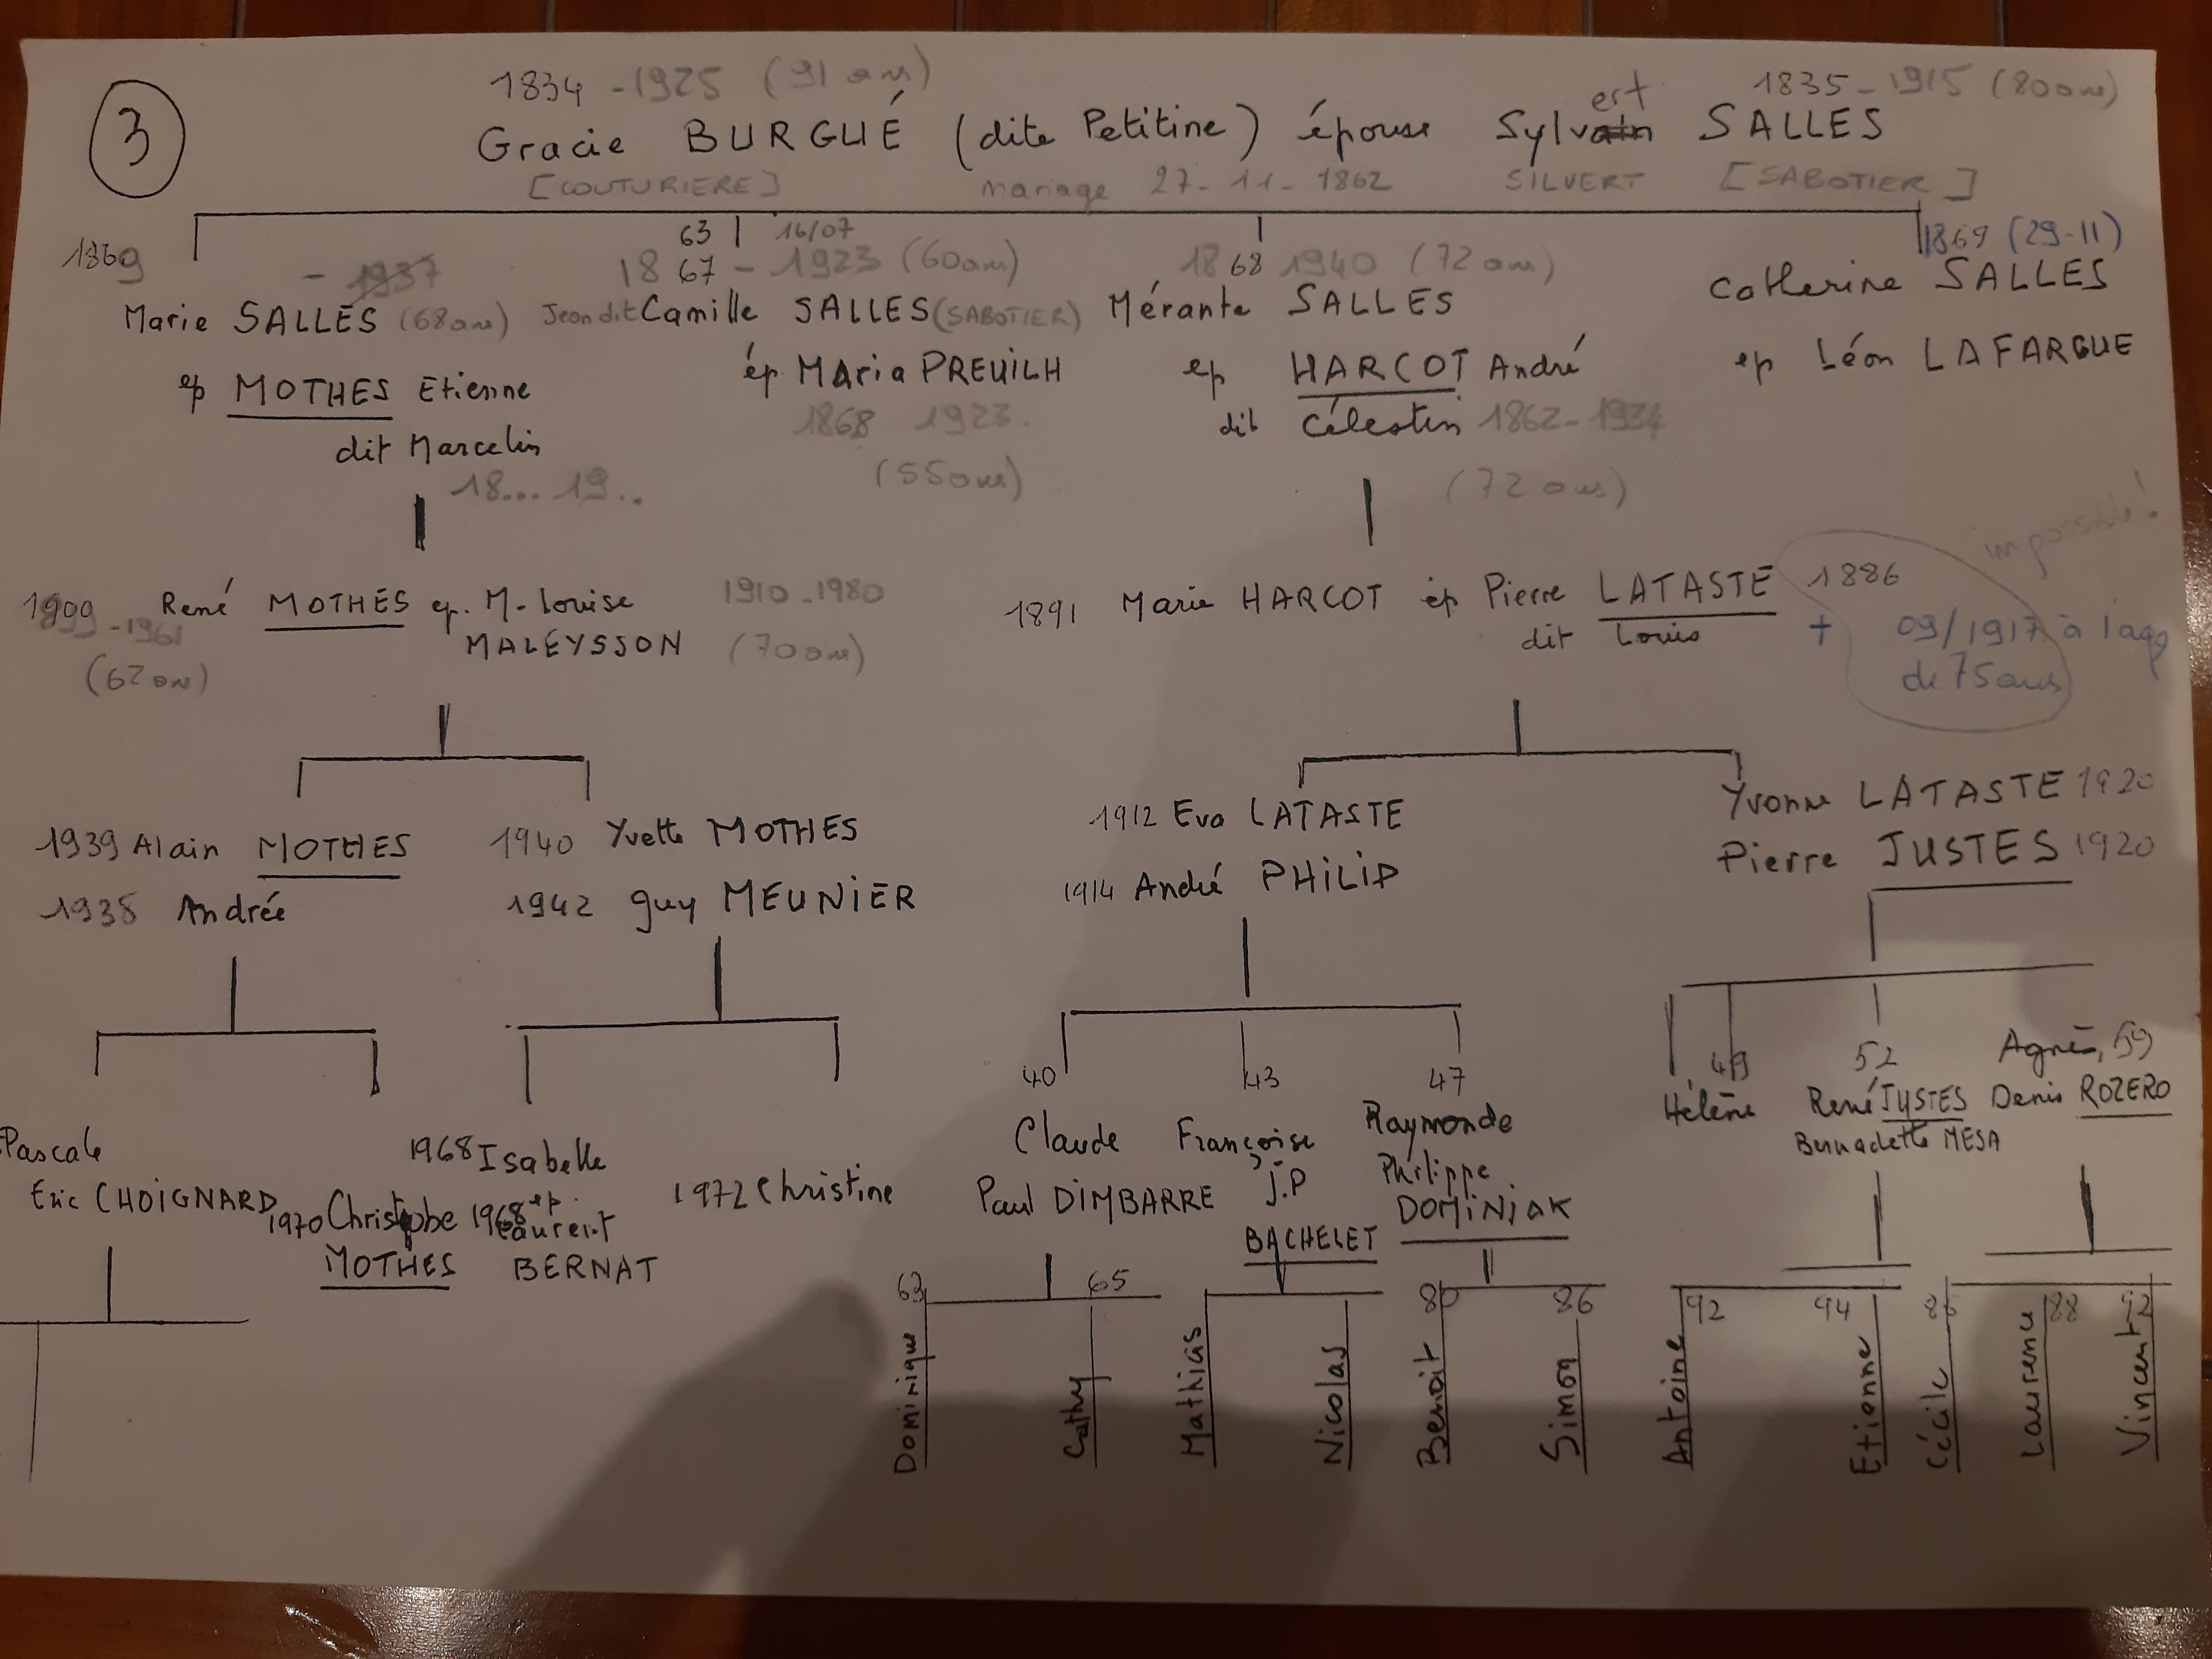 3
1834 - 1925 (91 ans)
1835 - 1915 (80 ans)
ert
Gracie BURGUÉ (dite Petitine) épouse Sylvain SALLES
[COUTURIERE] mariage 27-11-1862 SILVERT [SABOTIER]
63 16/07
1869 - 1937
1867 - 1923 (60ans)
1868 1940 (72 ans)
1869 (29-11)
Marie SALLES (68 ans)
Jean dit Camille SALLES (SABOTIER)
Mérante SALLES
Catherine SALLES
ep MOTHES Etienne
dit Marcelin
18... 19..
ép Maria PREUILH
1868 1923.
(55ans)
ep HARCOT André
dit Célestin 1862-1934
(72 ans)
ep Léon LAFARGUE
impossible!
1899 - 1961
(62 ans)
René MOTHES ep. M-Louise
MALEYSSON
1910-1980
(70ans)
1891 Marie HARCOT ép Pierre LATASTE 1886
dit Louis
+ 09/1917 à l'age
de 75 ans
1939 Alain MOTHES
1938 Andrée
1940 Yvette MOTHES
1942 guy MEUNIER
1912 Eva LATASTE
1914 André PHILIP
Yvonne LATASTE 1920
Pierre JUSTES 1920
Pascale
Eric CHOIGNARD
1970 Christophe
MOTHES
1968 Isabelle
ep.
1968 Laurent
BERNAT
1972 Christine
40
Claude
Paul DIMBARRE
43
Françoise
J.P
BACHELET
47
Raymonde
Philippe
DOMINJAK
49
Hélène
52
René JUSTES
Bernadette MESA
Agnès, 59
Denis ROZERO
63
Dominique
65
Cathy
Mathias
Nicolas
80
Benoit
86
Simon
92
Antoine
94
Etienne
Cécile
88
Laurence
92
Vincent